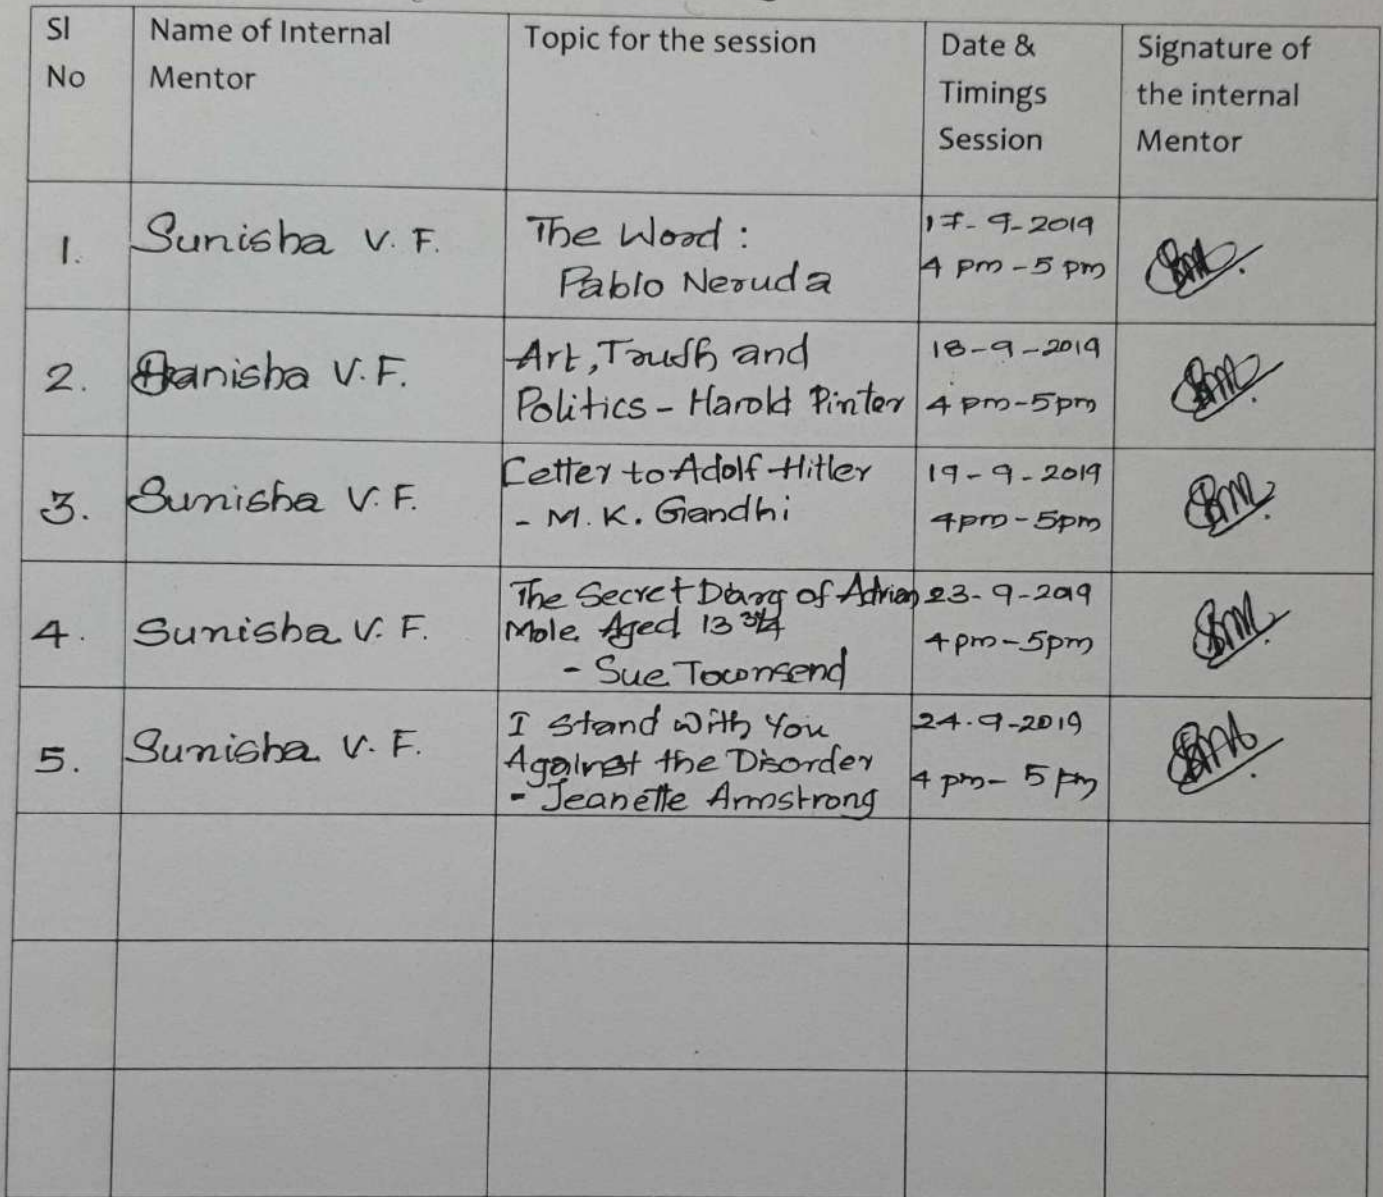 Sl No
Name of Internal Mentor
Topic for the session
Date & Timings Session
Signature of the internal Mentor
1.
Sunisha V. F.
The Word :
Pablo Neruda
17-9-2019
4 pm - 5 pm
2.
V. F.
Art, Truth and
Politics - Harold Pinter
18-9-2019
4 pm - 5 pm
3.
Sunisha V. F.
Letter to Adolf Hitler
- M. K. Gandhi
19-9-2019
4 pm - 5 pm
4.
Sunisha V. F.
The Secret Diary of Adrian
Mole Aged 13 3/4
- Sue Townsend
23-9-2019
4 pm - 5 pm
5.
Sunisha V. F.
I stand with You
Against the Disorder
- Jeanette Armstrong
24.9-2019
4 pm - 5 pm